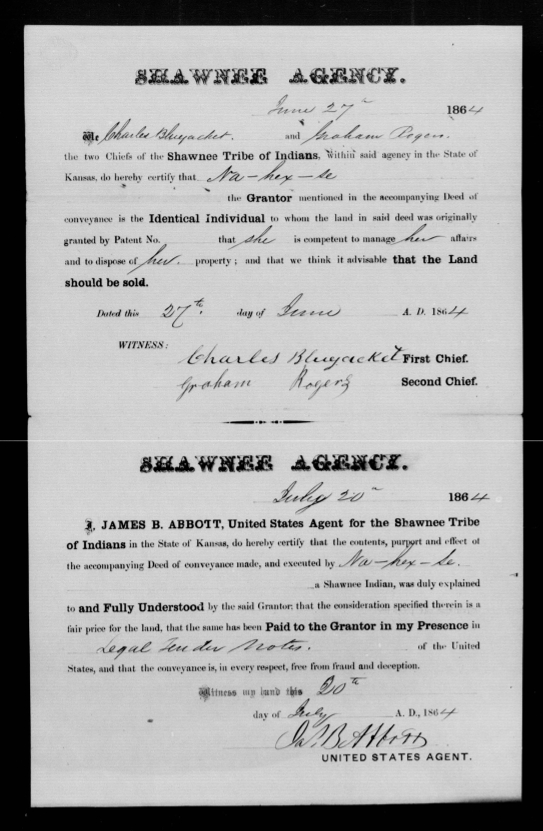 SHAWNEE AGENCY.
June 27" 1864
We Charles Bluejacket. and Graham Rogers.
the two Chiefs of the Shawnee Tribe of Indians, within said agency in the State of
Kansas, do hereby certify that Na-hex-se
the Grantor mentioned in the accompanying Deed of
conveyance is the Identical Individual to whom the land in said deed was originally
granted by Patent No. that she is competent to manage her affairs
and to dispose of her. property; and that we think it advisable that the Land
should be sold.
Dated this 27th. day of June A. D. 1864
WITNESS:
Charles Bluejacket First Chief.
Graham Rogers Second Chief.
SHAWNEE AGENCY.
July 20" 1864
I, JAMES B. ABBOTT, United States Agent for the Shawnee Tribe
of Indians in the State of Kansas, do hereby certify that the contents, purport and effect of
the accompanying Deed of conveyance made, and executed by Na-hex-se.
a Shawnee Indian, was duly explained
to and Fully Understood by the said Grantor; that the consideration specified therein is a
fair price for the land, that the same has been Paid to the Grantor in my Presence in
Legal Tender Notes. of the United
States, and that the conveyance is, in every respect, free from fraud and deception.
Witness my hand this 20th
day of July A. D., 1864
Jas. B. Abbott
UNITED STATES AGENT.